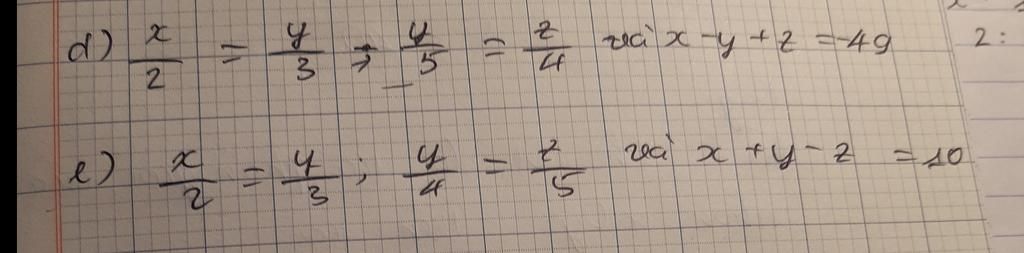 d) x/2 = y/3 ; y/5 = z/4 và x - y + z = -49
2:
e) x/2 = y/3 ; y/4 = z/5 và x + y - z = 10